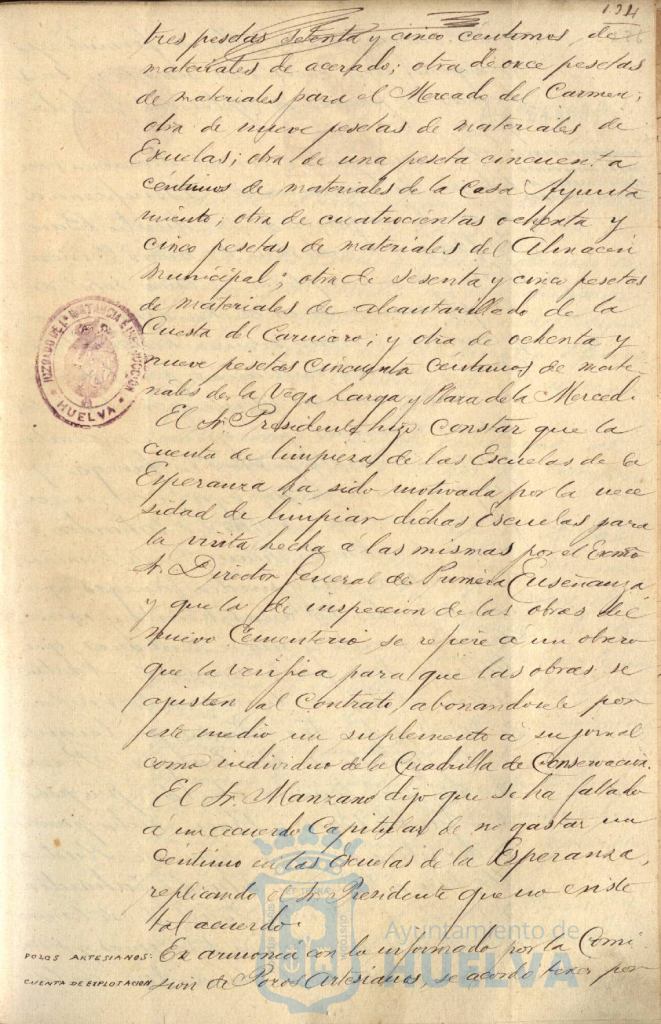 134
tres pesetas setenta y cinco céntimos de
materiales de acerado; otra de once pesetas
de materiales para el Mercado del Carmen;
otra de nueve pesetas de materiales de
Escuelas; otra de una peseta cincuenta
céntimos de materiales de la Casa Ayunta
miento; otra de cuatrocientas ochenta y
cinco pesetas de materiales del Almacén
Municipal; otra de sesenta y cinco pesetas
de materiales de alcantarillado de la
Cuesta del Carnicero; y otra de ochenta y
nueve pesetas cincuenta céntimos de mate-
riales de la Vega Larga y Plaza de la Merced.
El Sr. Presidente hizo constar que la
cuenta de limpieza de las Escuelas de la
Esperanza ha sido motivada por la nece
sidad de limpiar dichas Escuelas para
la visita hecha á las mismas por el Exmo
Sr. Director General de Primera Enseñanza
y que la de inspección de las obras del
nuevo Cementerio se refiere á un obrero
que la verifica para que las obras se
ajusten al Contrato abonandosele por
este medio un suplemento á su jornal
como individuo de la Cuadrilla de Conservación.
El Sr. Manzano dijo que se ha faltado
á un acuerdo Capitular de no gastar un
céntimo en las Escuelas de la Esperanza,
replicando el Sr. Presidente que no existe
tal acuerdo.
POZOS ARTESIANOS: En armonía con lo informado por la Comi
CUENTA DE EXPLOTACION sion de Pozos Artesianos, se acordó tener por
JUZGADO DE 1ª INSTANCIA E INSTRUCCION
HUELVA
Ayuntamiento de
HUELVA